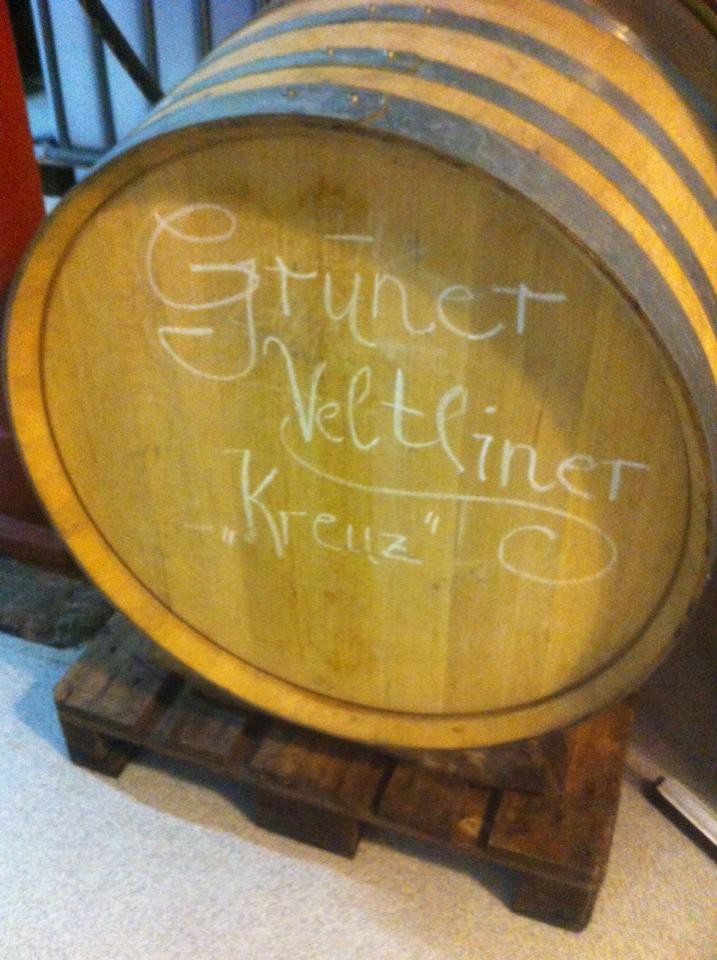 Grüner
Veltliner
- „Kreuz“